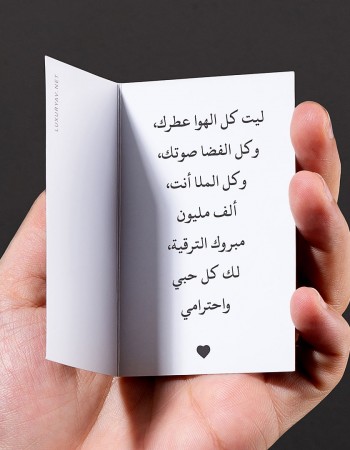 ليت كل الهوا عطرك،
وكل الفضا صوتك،
وكل الملا أنت،
ألف مليون
مبروك الترقية،
لك كل حبي
واحترامي